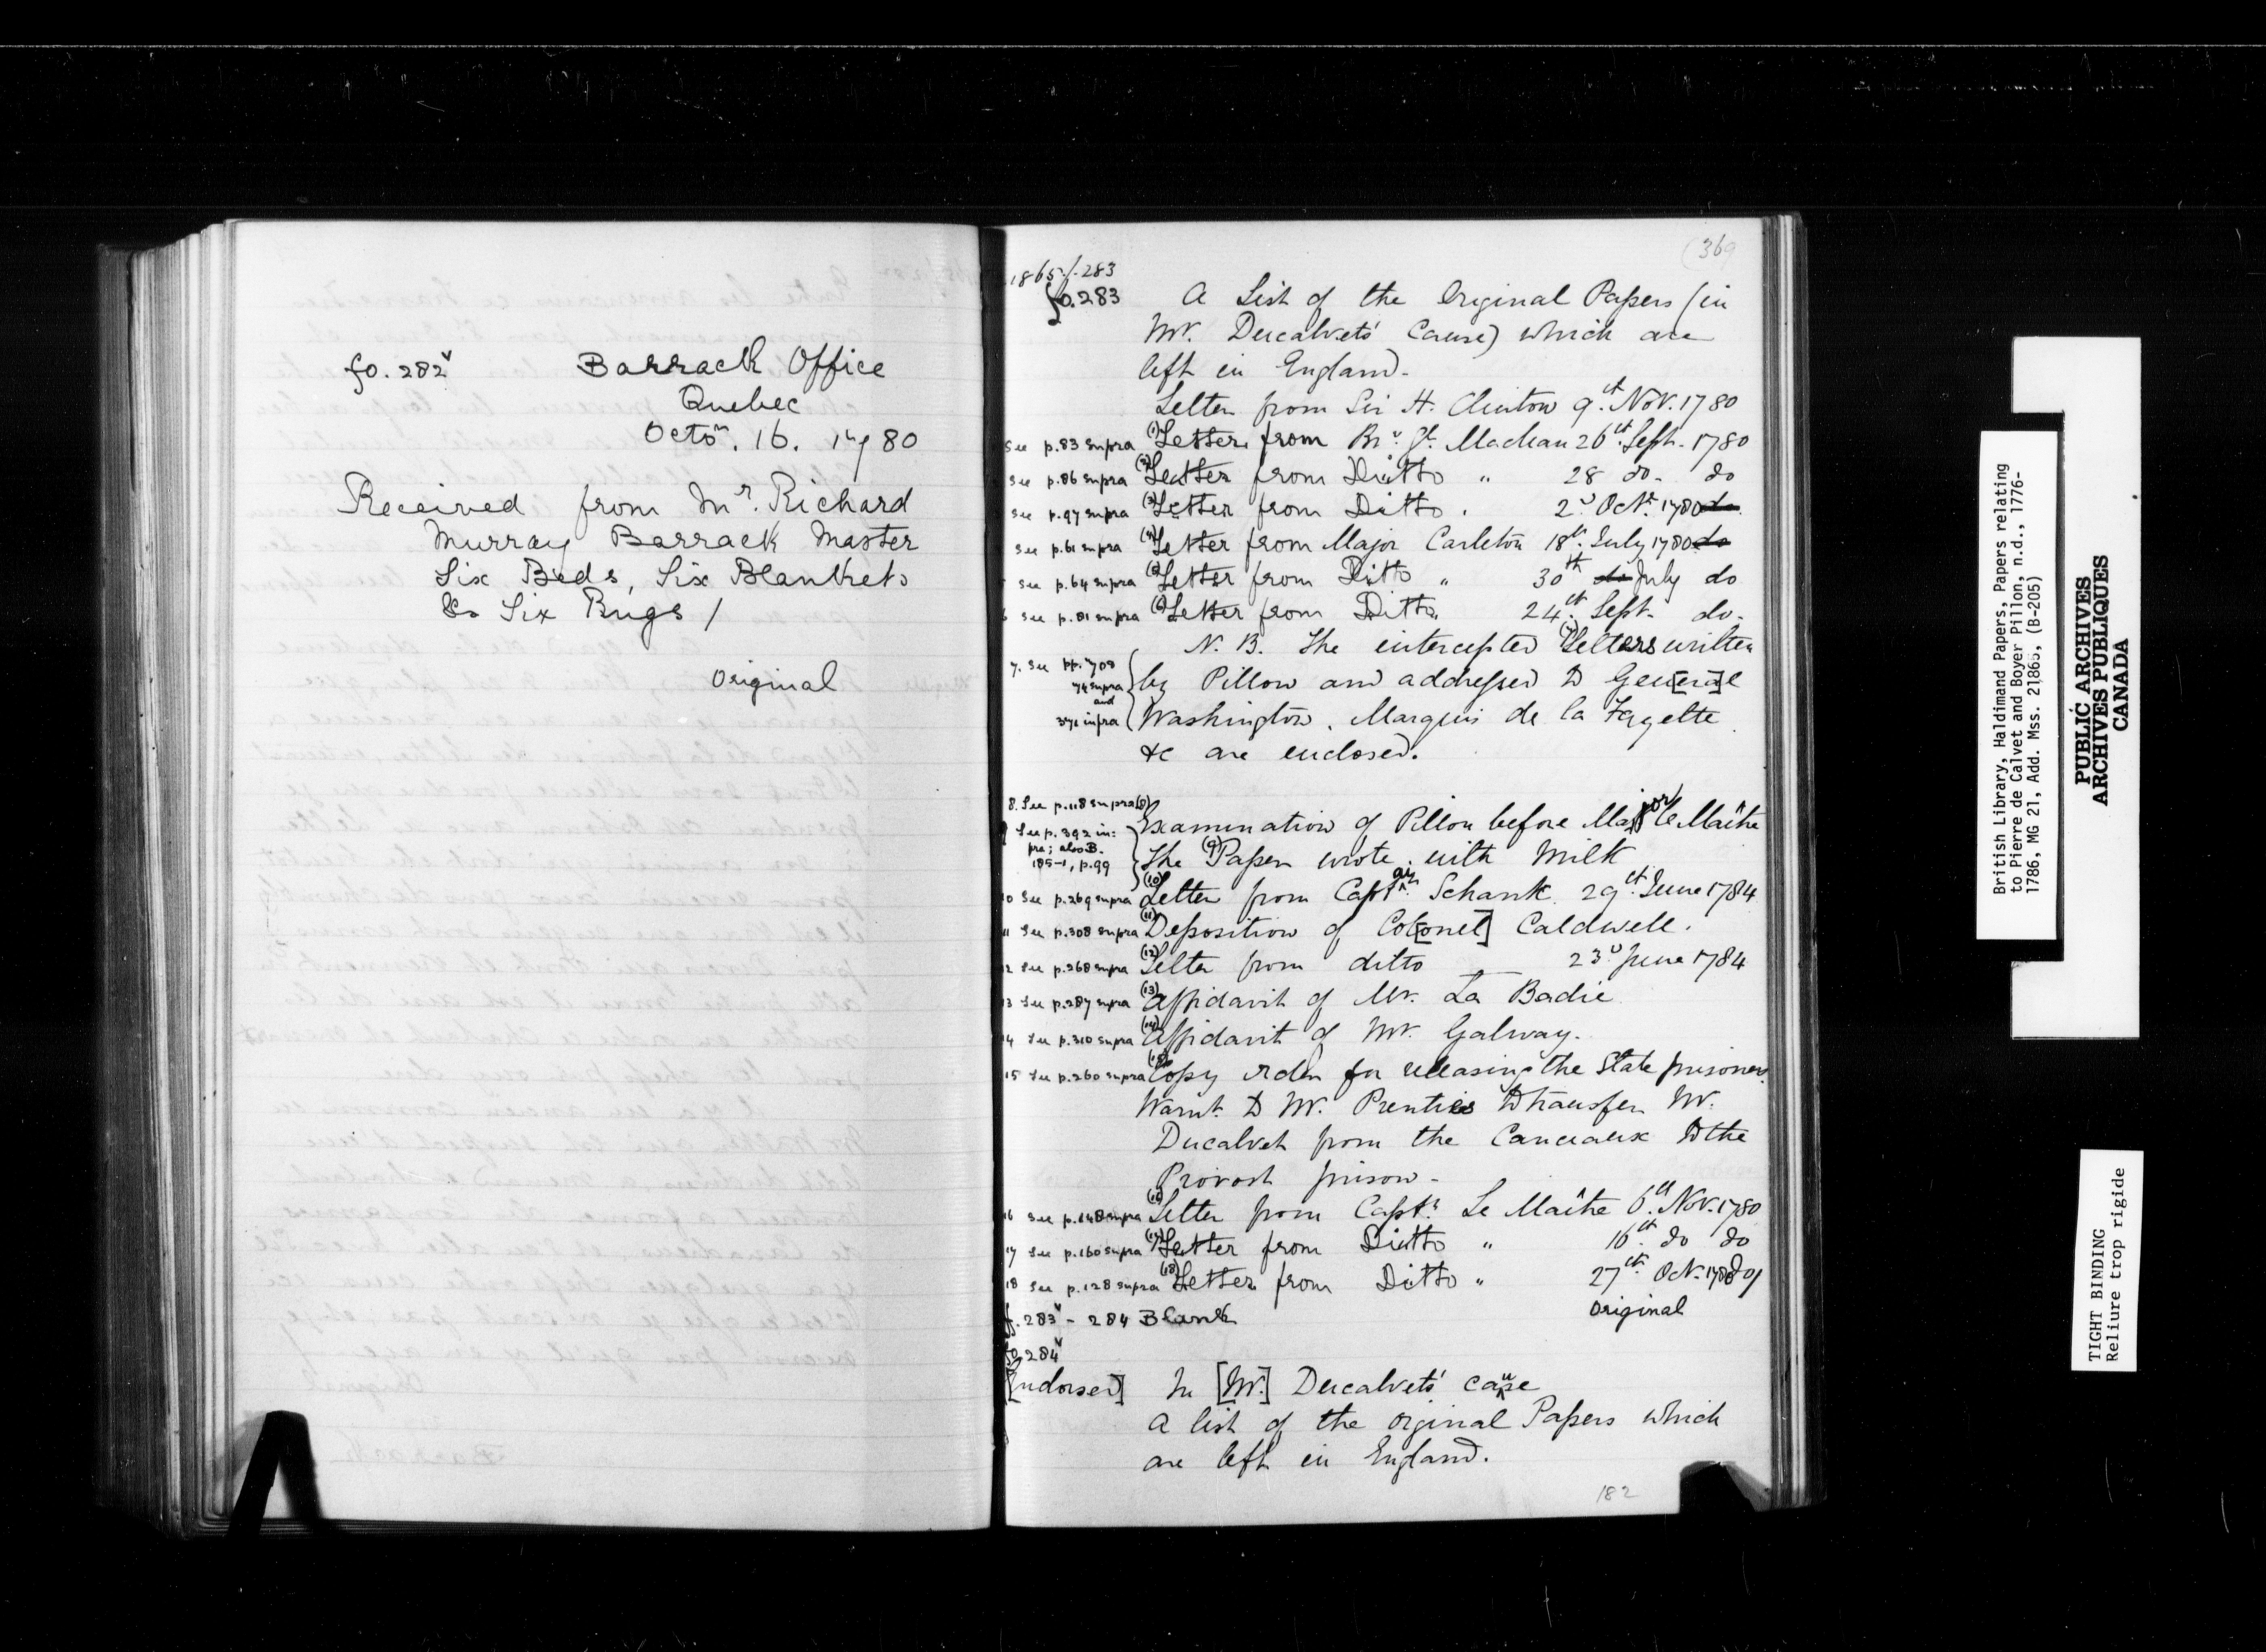 fo. 282v
Barrack Office
Quebec
Octor. 16. 1780
Received from Mr. Richard
Murray Barrack Master
Six Beds, Six Blankets
& Six Rugs /
Original
(369
1865 f. 283
fo. 283
A List of the Original Papers (in
Mr. Ducalvets' Cause) which are
left in England.
Letter from Sir H. Clinton 9th. Nov. 1780
See p. 83 supra (1) Letter from Br. Gl. Maclean 26th Sept. 1780
See p. 86 supra (2) Letter from Ditto " 28 do. do
See p. 97 supra (3) Letter from Ditto . 2d Octr. 1780 do
See p. 61 supra (4) Letter from Major Carleton 18th. July 1780 do
See p. 64 supra (5) Letter from Ditto " 30th do July do
6 See p. 81 supra (6) Letter from Ditto 24th Sept. do.
N. B. The intercepted (7) Letters written
7. See pp. 70 &
74 supra
and
371 infra
by Pillon and addressed to Gen[era]l
Washington, Marquis de la Fayette
&c are enclosed.
8. See p. 118 supra (8)
Examination of Pillon before Major Le Maître
9 See p. 392 in=
fra; also B.
185-1, p. 99
The (9) Paper wrote with Milk
10 See p. 269 supra (10) Letter from Captain Schank 29th June 1784
11 See p. 308 supra (11) Deposition of Col[onel] Caldwell.
12 See p. 268 supra (12) Letter from ditto 23d June 1784
13 See p. 287 supra (13) Affidavit of Mr. La Badie
14 See p. 310 supra (14) Affidavit of Mr. Galway.
15 See p. 260 supra (15) Copy order for releasing the State prisoners
Warnt. to Mr. Prenties to transfer Mr.
Ducalvet from the Canceaux to the
Provost prison -
16 See p. 148 supra (16) Letter from Captn. Le Maître 6th Nov. 1780
17 See p. 160 supra (17) Letter from Ditto " 16th do do
18 See p. 128 supra (18) Letter from Ditto " 27th Octr. 1780 do/
ff. 283v - 284 Blank
Original
fo 284v
[Endorsed] In [Mr.] Ducalvets' cause
A list of the orginal Papers which
are left in England.
182
British Library, Haldimand Papers, Papers relating
to Pierre de Calvet and Boyer Pillon, n.d., 1776-
1786, MG 21, Add. Mss. 21865, (B-205)
PUBLIC ARCHIVES
ARCHIVES PUBLIQUES
CANADA
TIGHT BINDING
Reliure trop rigide